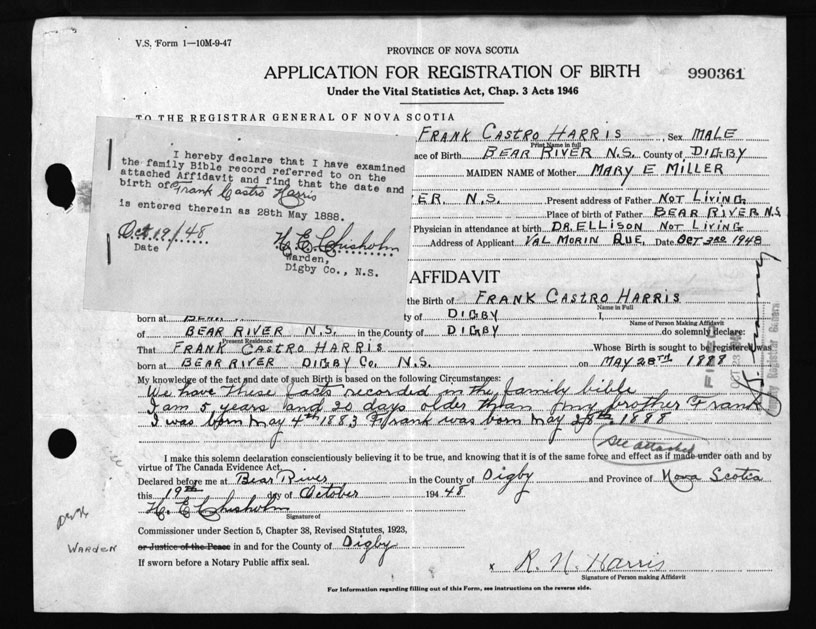 V.S. Form 1—10M-9-47
PROVINCE OF NOVA SCOTIA
APPLICATION FOR REGISTRATION OF BIRTH
990361
Under the Vital Statistics Act, Chap. 3 Acts 1946
TO THE REGISTRAR GENERAL OF NOVA SCOTIA
I hereby declare that I have examined
the family Bible record referred to on the
attached Affidavit and find that the date and
birth of Frank Castro Harris
is entered therein as 28th May 1888.
Oct 19/48
Date
H. E. Chisholm
Warden,
Digby Co., N.S.
FRANK CASTRO HARRIS, Sex MALE
Print Name in full
ace of Birth BEAR RIVER N.S. County of DIGBY
MAIDEN NAME of Mother MARY E MILLER
ER, N.S. Present address of Father NOT LIVING
Place of birth of Father BEAR RIVER N.S.
Physician in attendance at birth DR. ELLISON NOT LIVING
Address of Applicant VAL MORIN QUE, Date OCT 3RD 1948
AFFIDAVIT
the Birth of FRANK CASTRO HARRIS
Name in Full
born at ty of DIGBY I,
Name of Person Making Affidavit
of BEAR RIVER N.S. in the County of DIGBY do solemnly declare:
Present Residence
That FRANK CASTRO HARRIS Whose Birth is sought to be registered was
born at BEAR RIVER DIGBY Co. N.S. on MAY 28TH 1888
My knowledge of the fact and date of such Birth is based on the following Circumstances:
We have these facts recorded in the family bible
I am 5 years and 20 days older than my brother Frank
I was born May 4th 1883 Frank was born May 28th 1888
See attached
I make this solemn declaration conscientiously believing it to be true, and knowing that it is of the same force and effect as if made under oath and by
virtue of The Canada Evidence Act.
Declared before me at Bear River in the County of Digby and Province of Nova Scotia
this 19th day of October 194 48
H. E. Chisholm
Signature of
Commissioner under Section 5, Chapter 38, Revised Statutes, 1923,
or Justice of the Peace in and for the County of Digby
WARDEN
If sworn before a Notary Public affix seal.
x R. N. Harris
Signature of Person making Affidavit
For Information regarding filling out of this Form, see instructions on the reverse side.